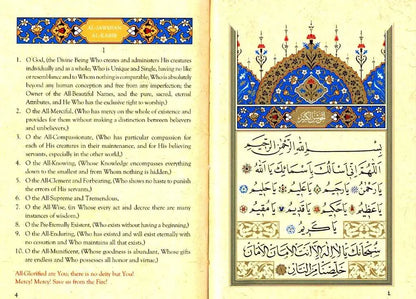 AL-JAWSHAN
AL-KABIR
1
1. O God, (the Divine Being Who creates and administers His creatures
individually and as a whole; Who is Unique and Single, having no like
or resemblance and to Whom nothing is comparable; Who is absolutely
beyond any human conception and free from any imperfection; the
Owner of the All-Beautiful Names, and the pure, sacred, eternal
Attributes, and He Who has the exclusive right to worship.)
2. O the All-Merciful, (Who has mercy on the whole of existence and
provides for them without making a distinction between believers
and unbelievers,)
3. O the All-Compassionate, (Who has particular compassion for
each of His creatures in their maintenance, and for His believing
servants, especially in the other world,)
4. O the All-Knowing, (Whose Knowledge encompasses everything
down to the smallest and from Whom nothing is hidden,)
5. O the All-Clement and Forbearing, (Who shows no haste to punish
the errors of His servants,)
6. O the All-Supreme and Tremendous,
7. O the All-Wise, (in Whose every act and decree there are many
instances of wisdom,)
8. O the Pre-Eternally Existent, (Who exists without having a beginning,)
9. O the All-Enduring, (Who has existed and will exist eternally with
no cessation and Who maintains all that exists,)
10. O the All-Munificent, (Whose generosity is abundant, Whose gifts
are endless and Who possesses all honor and virtue.)
All-Glorified are You; there is no deity but You!
Mercy! Mercy! Save us from the Fire!
4
بِسْمِ اللهِ الرَّحْمٰنِ الرَّحِيمِ
اَللّٰهُمَّ اِنِّي اَسْئَلُكَ بِاَسْمَائِكَ يَا اَللهُ
يَا رَحْمٰنُ يَا رَحِيمُ يَا عَلِيمُ يَا حَلِيمُ
يَا عَظِيمُ يَا حَكِيمُ يَا قَدِيمُ يَا مُقِيمُ
يَا كَرِيمُ
سُبْحَانَكَ يَا لَا اِلٰهَ اِلَّا اَنْتَ الْاَمَانُ الْاَمَانُ
خَلِّصْنَا مِنَ النَّارِ